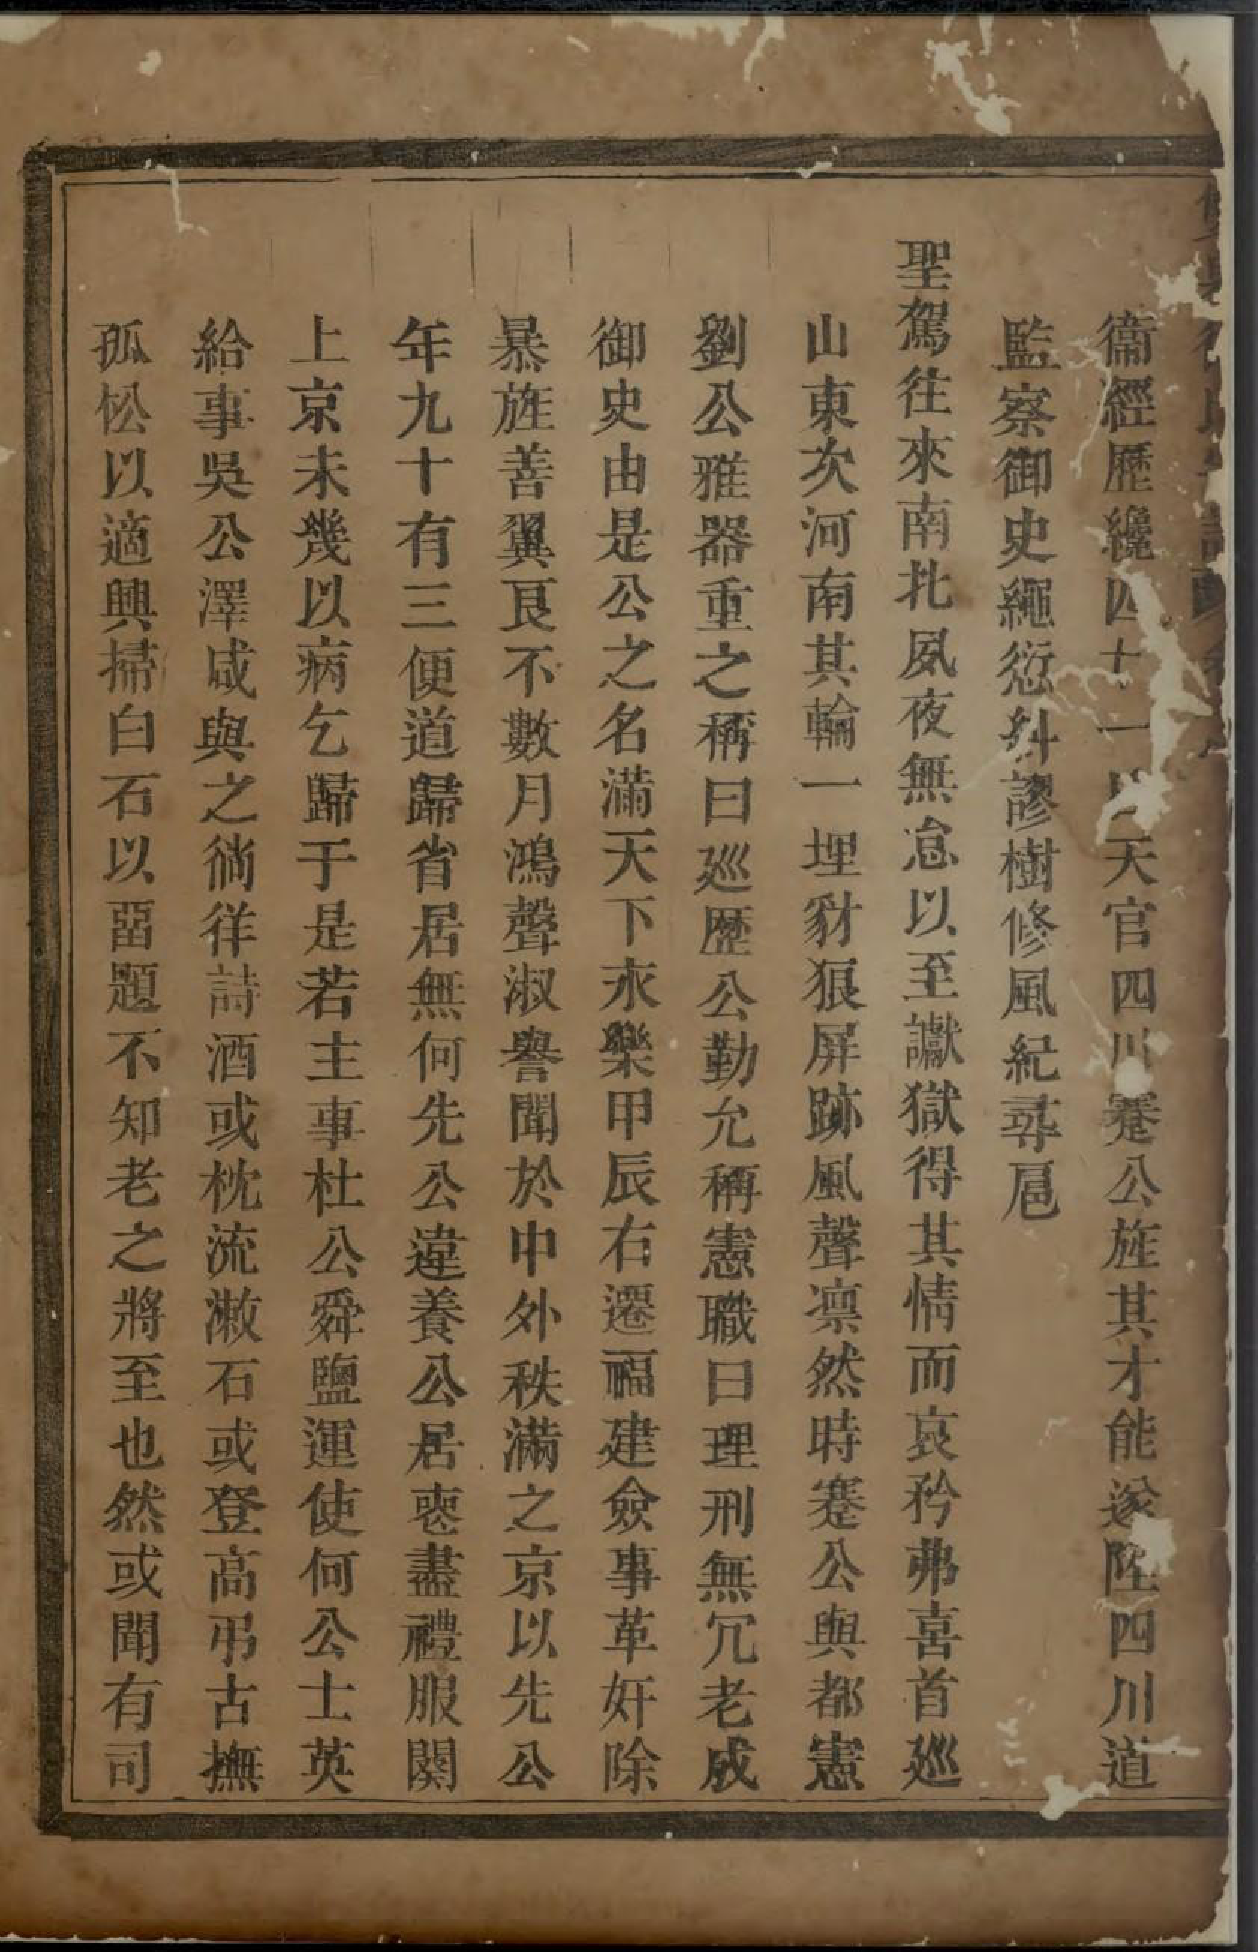 衞經歷纔四十一日天官四川蹇公旌其才能遂陞四川道
監察御史繩愆糾謬樹修風紀尋扈
聖駕往來南北夙夜無怠以至讞獄得其情而哀矜弗喜首廵
山東次河南其輪一埋豺狼屏跡風聲凛然時蹇公與都憲
劉公雅器重之稱曰廵歷公勤允稱憲職曰理刑無冗老成
御史由是公之名滿天下永樂甲辰右遷福建僉事革奸除
暴旌善翼良不數月鴻聲淑譽聞於中外秩滿之京以先公
年九十有三便道歸省居無何先公違養公居喪盡禮服闋
上京未幾以病乞歸于是若主事杜公舜鹽運使何公士英
給事吳公澤咸與之徜徉詩酒或枕流漱石或登高弔古撫
孤松以適興掃白石以畱題不知老之將至也然或聞有司